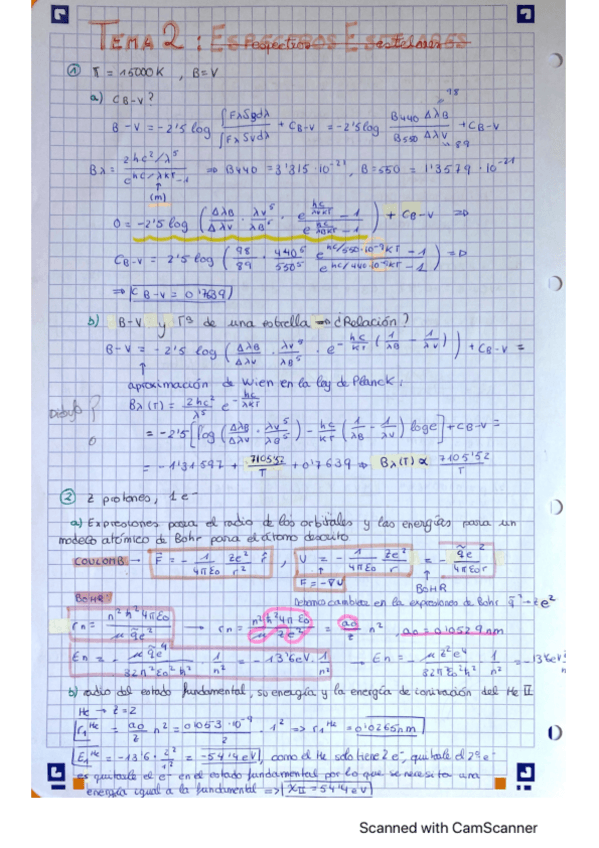 TEMA 2 : ESPECTROS ESTELARES
① T = 15000K , B=V
a) C_B-V ?
18
B-V = -2'5 log ∫Fλ S_B dλ / ∫Fλ S_V dλ + C_B-V = -2'5 log B440 ΔλB / B550 ΔλV + C_B-V
89
Bλ = 2hc²/λ⁵ / e^(hc/λKT) - 1 ⇒ B440 = 3'315·10⁻²¹ , B=550 = 1'3579·10⁻²¹
(m)
0 = -2'5 log (ΔλB/ΔλV · λV⁵/λB⁵ · e^(hc/λVKT) - 1 / e^(hc/λBKT) - 1) + C_B-V ⇒
C_B-V = 2'5 log (98/89 · 440⁵/550⁵ · e^(hc/550·10⁻⁹KT) - 1 / e^(hc/440·10⁻⁹KT) - 1) ⇒
⇒ C_B-V = 0'7639
b) B-V y Tª de una estrella ⇒ ¿Relación?
B-V = -2'5 log (ΔλB/ΔλV · λV⁵/λB⁵ · e^(-hc/KT (1/λB - 1/λV))) + C_B-V =
↑
aproximación de Wien en la ley de Planck:
Bλ(T) = 2hc²/λ⁵ e^(-hc/λKT)
Dibujo?
= -2'5 [log (ΔλB/ΔλV · λV⁵/λB⁵) - hc/KT (1/λB - 1/λV) log e] + C_B-V =
= -1'31597 + 7105'52/T + 0'7639 ⇒ Bλ(T) ∝ 7105'52/T
② Z protones, 1 e⁻
a) Expresiones para el radio de los orbitales y las energías para un
modelo atómico de Bohr para el átomo descrito
COULOMB → F⃗ = - 1/4πε0 Ze²/r² r̂ , V = - 1/4πε0 Ze²/r = - q̃e²/4πε0r
F = -∇V
BOHR
BOHR:
Debemos cambiar en la expresiones de Bohr q̃² → Ze²
rn = n²ħ²4πε0/μ q̃e² → rn = n²ħ²4πε0/μ Ze² = a0/Z n² , a0 = 0'0529 nm
En = - μ q̃e⁴/32π²ε0²ħ² · 1/n² = -13'6eV · 1/n² → En = - μZ²e⁴/32π²ε0²ħ² · 1/n² = -13'6eV
b) radio del estado fundamental, su energía y la energía de ionización del He II
He → Z=2
r1^He = a0/Z n² = 0'053·10⁻⁹/2 · 1² ⇒ r1^He = 0'0265nm
E1^He = -13'6 · 2²/1² = -54'4eV , como el He solo tiene 2e⁻, quitarle el 2º e⁻
es quitarle el e⁻ en el estado fundamental por lo que se necesita una
energía igual a la fundamental ⇒ XII = 54'4eV
Scanned with CamScanner